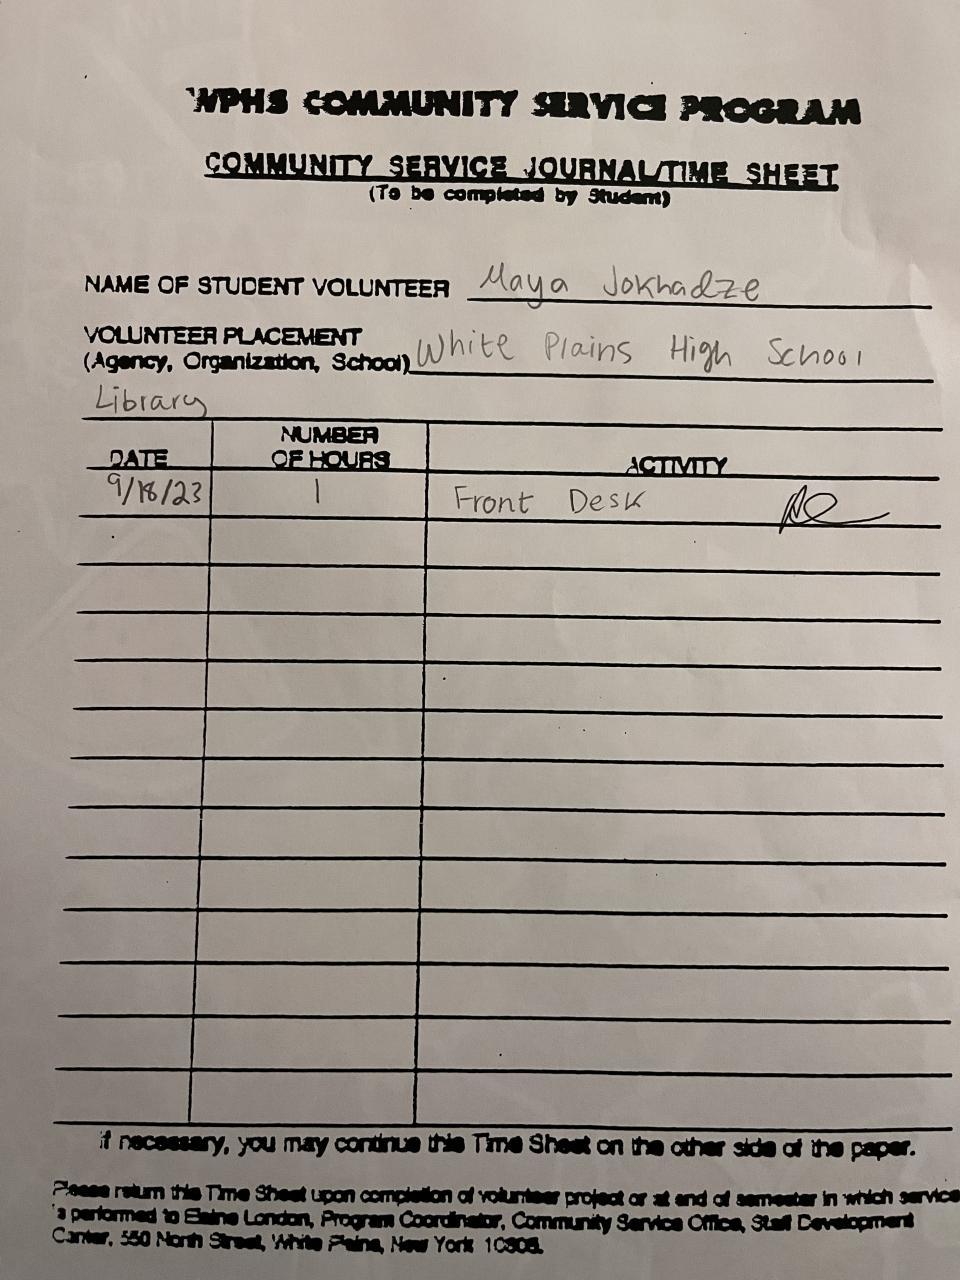 WPHS COMMUNITY SERVICE PROGRAM
COMMUNITY SERVICE JOURNAL/TIME SHEET
(To be completed by Student)
NAME OF STUDENT VOLUNTEER Maya Jokhadze
VOLUNTEER PLACEMENT
(Agency, Organization, School) White Plains High School
Library
DATE NUMBER OF HOURS ACTIVITY
9/18/23 1 Front Desk
if necessary, you may continue this Time Sheet on the other side of the paper.
Please return this Time Sheet upon completion of volunteer project or at end of semester in which service
is performed to Elaine London, Program Coordinator, Community Service Office, Staff Development
Center, 550 North Street, White Plains, New York